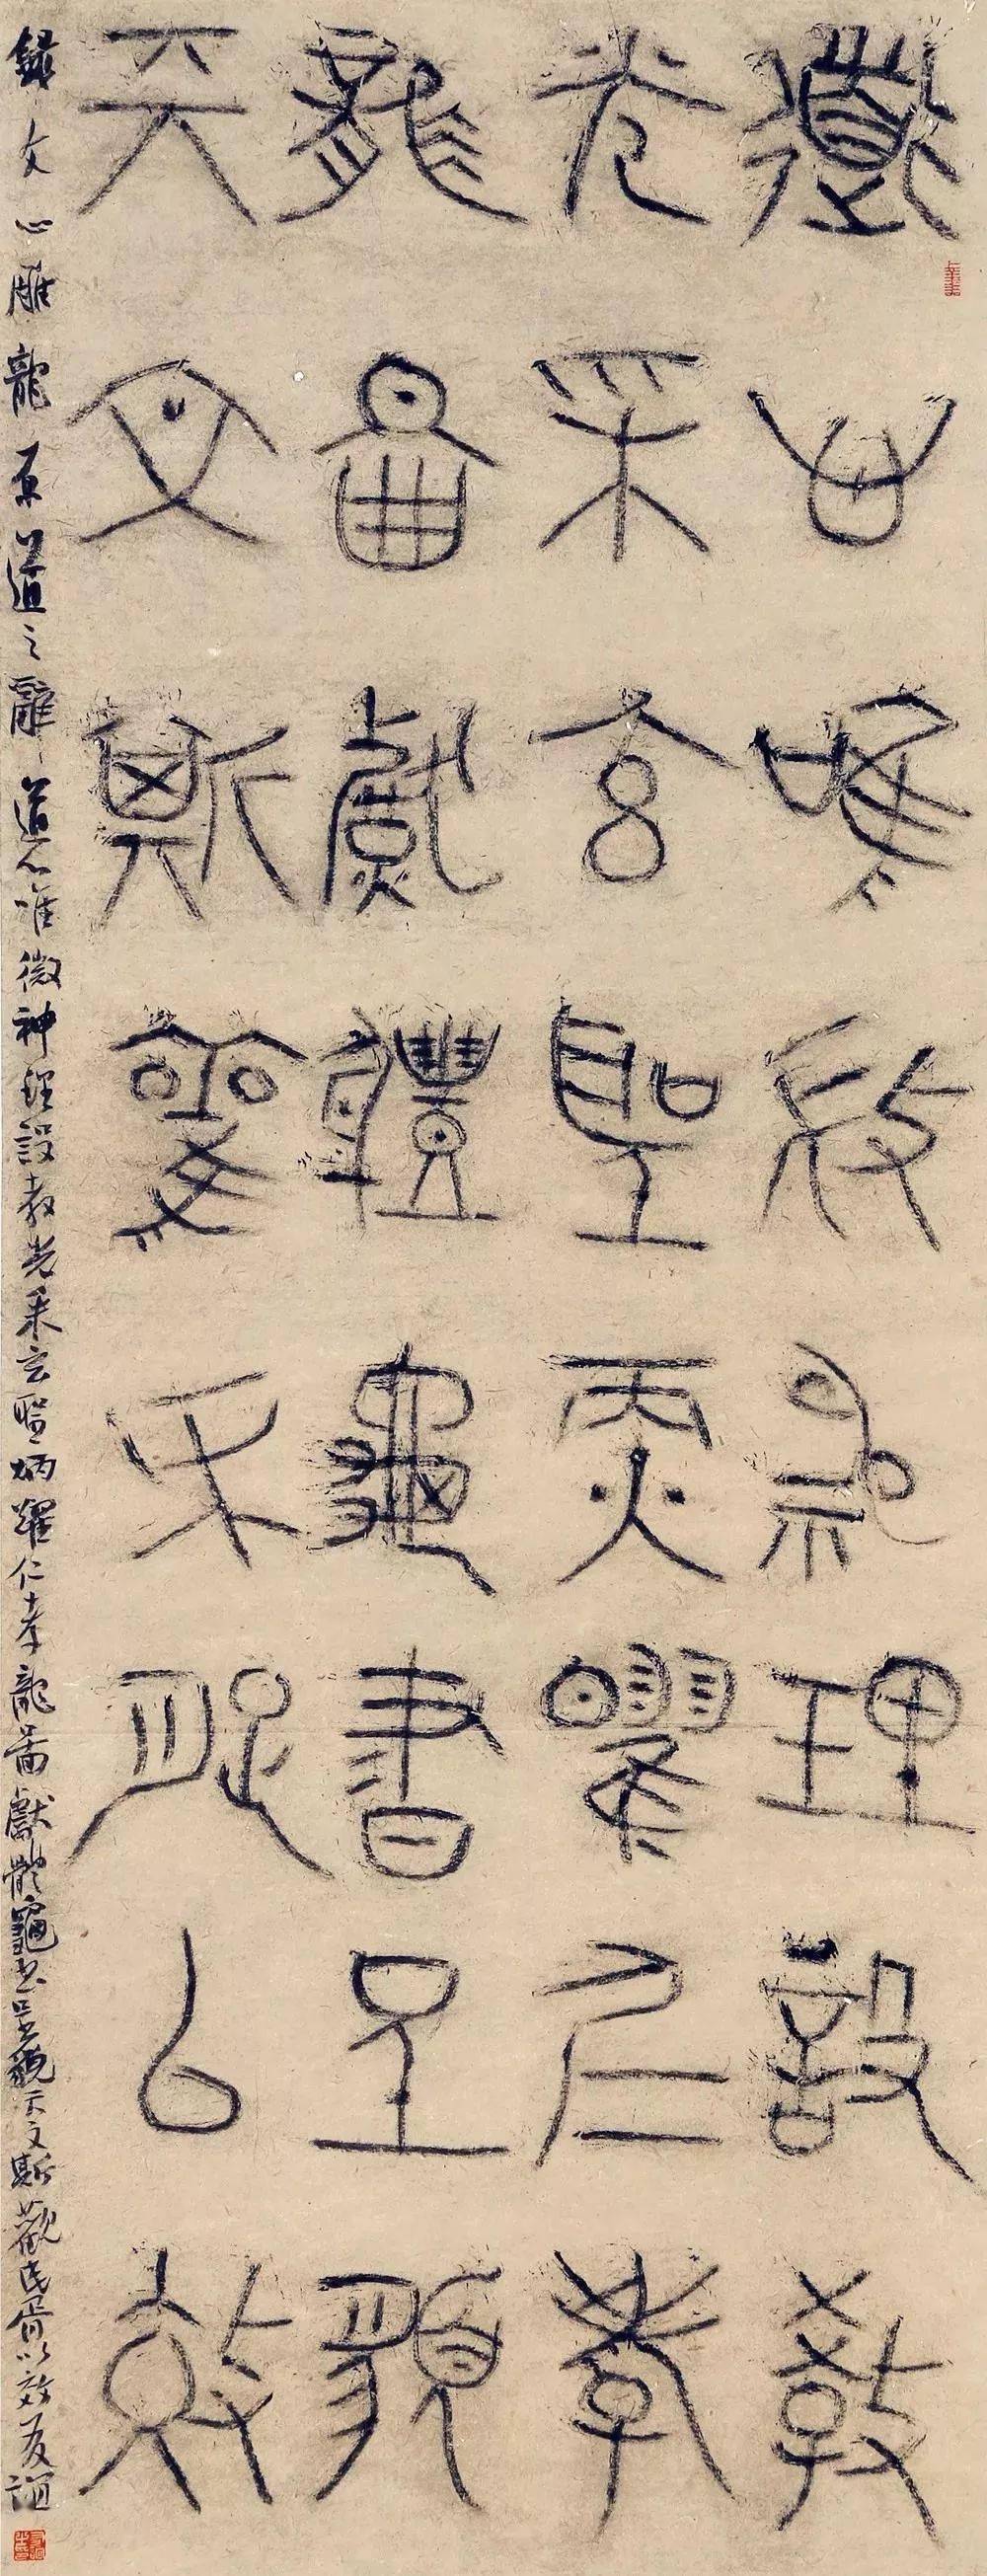 道心唯微神理設教
光采玄聖炳耀仁孝
龍圖獻體龜書呈貌
天文斯觀民胥以效
錄文心雕龍原道之辭道心唯微神理設教光采玄聖炳耀仁孝龍圖獻體龜書呈貌天文斯觀民胥以效友誼